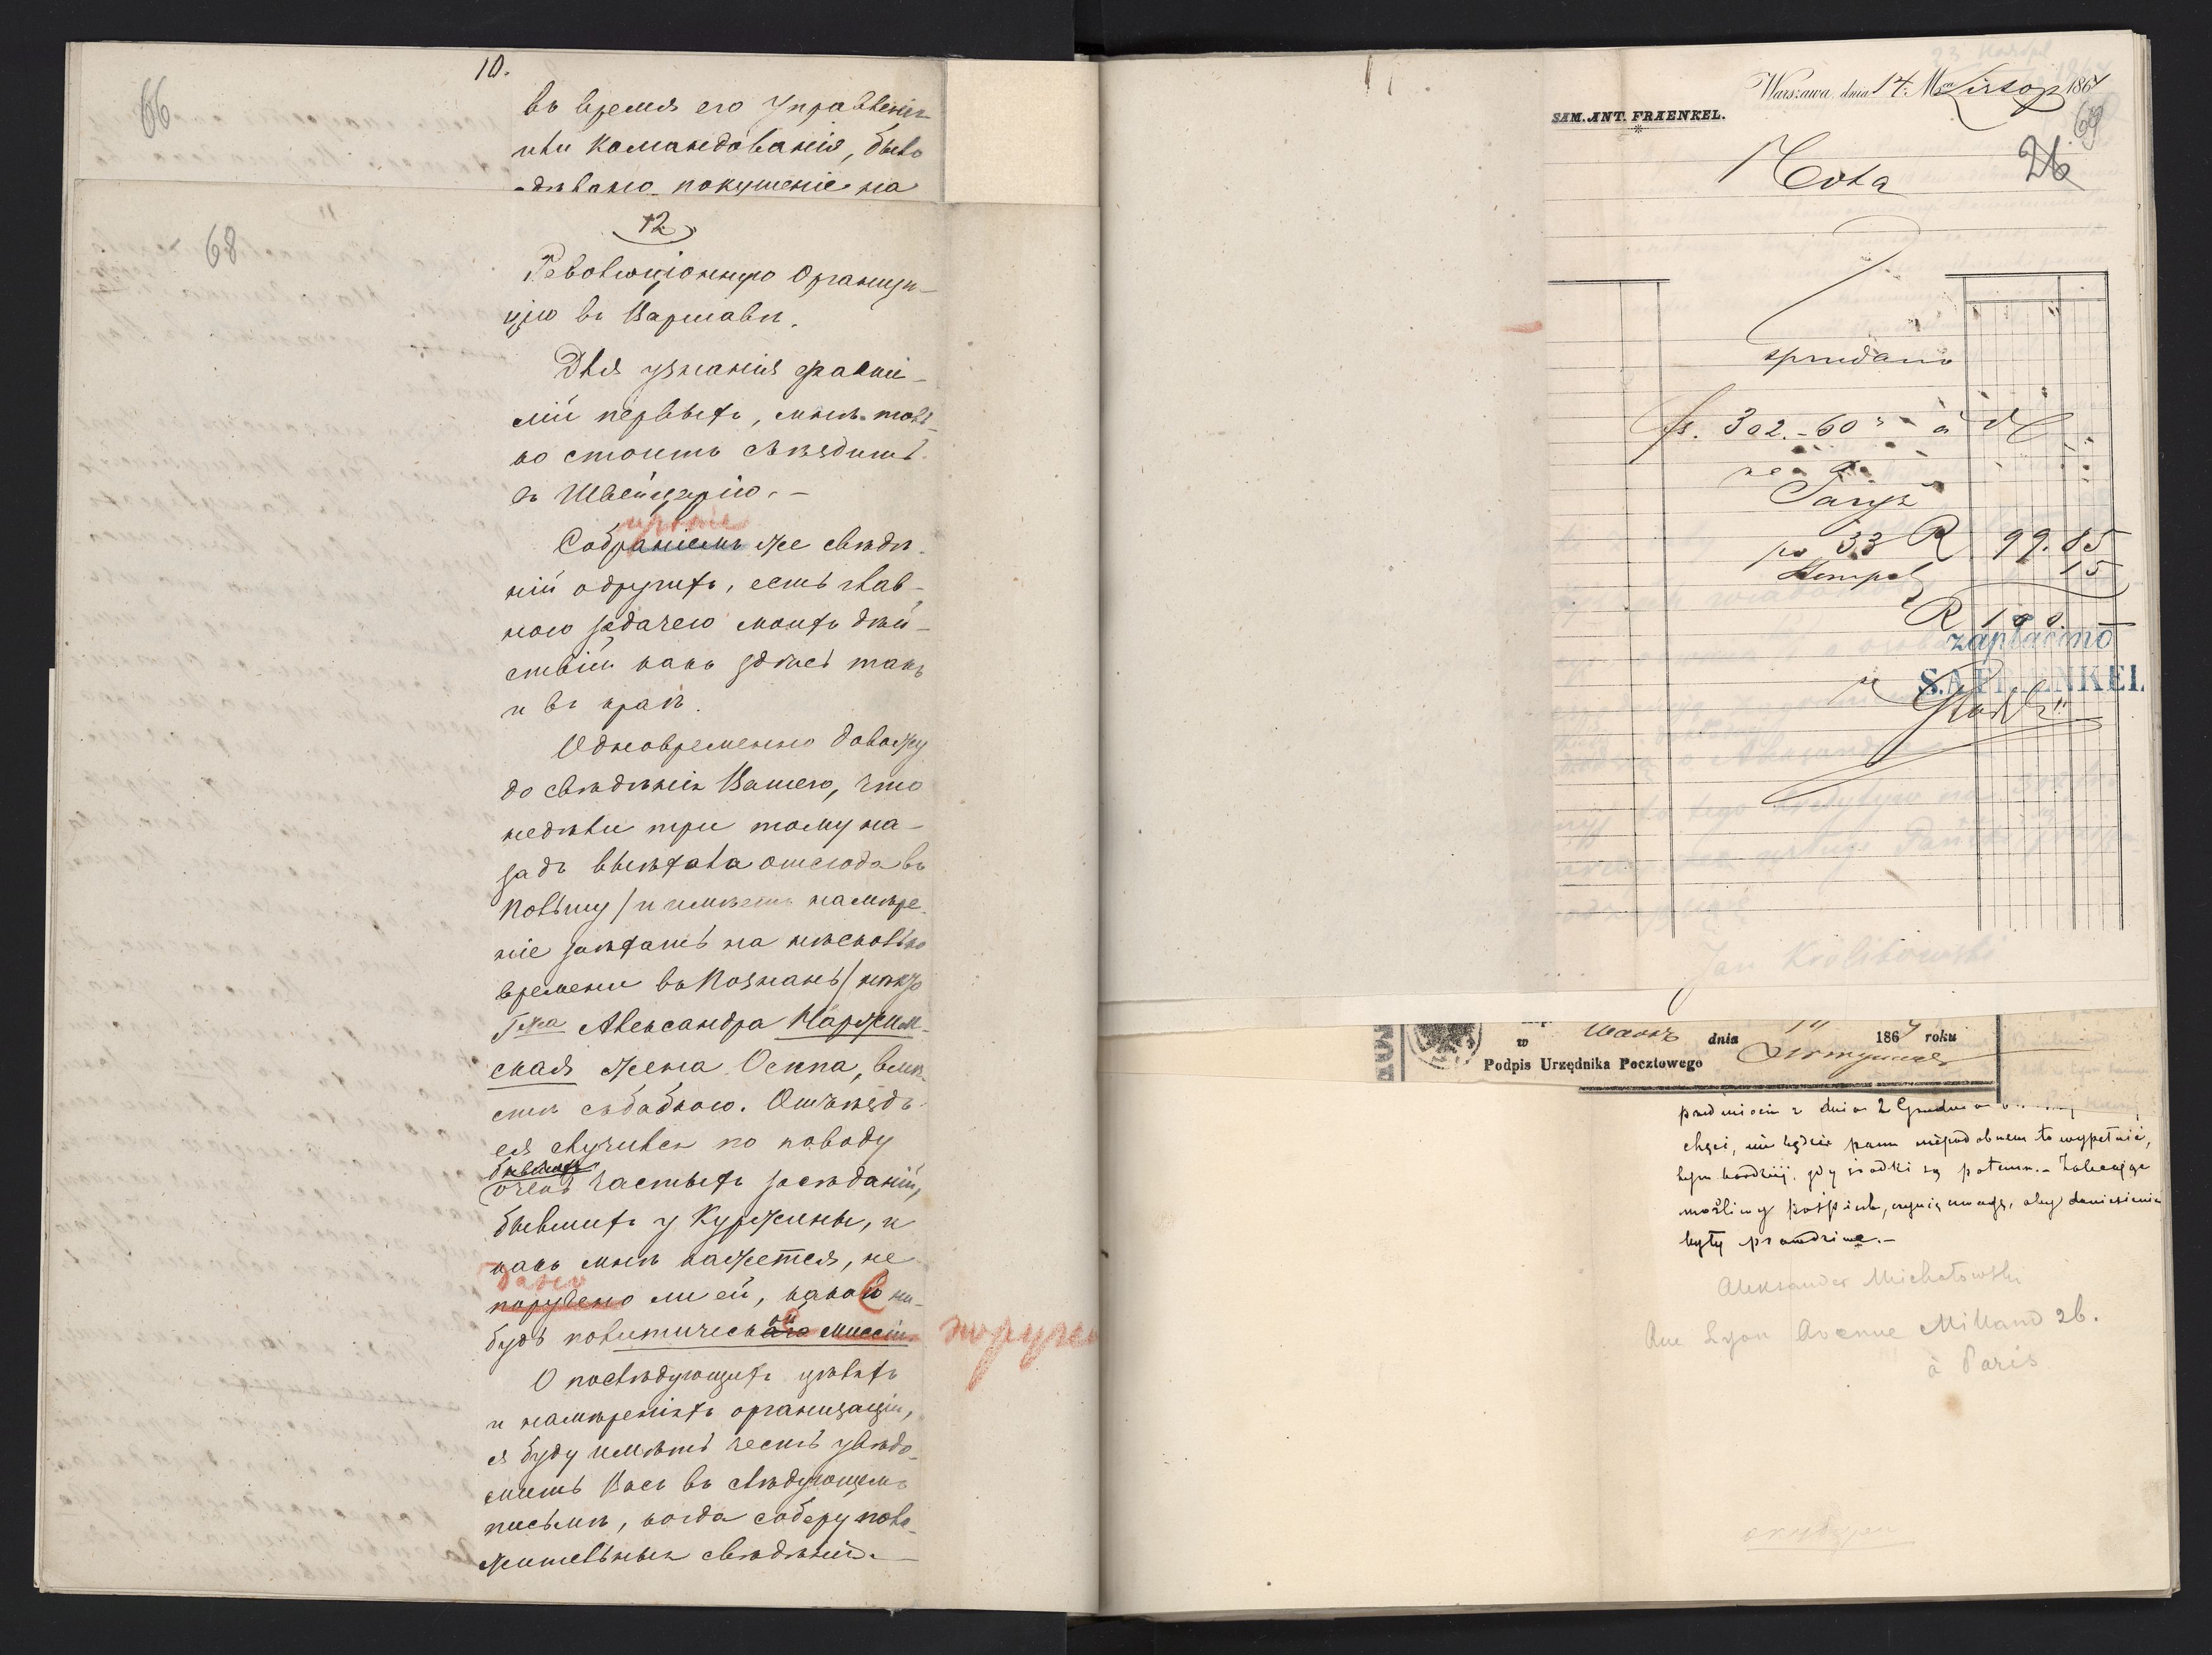 66
10.
въ время его Управленія
или командованія, было
дѣлано покушеніе на
68
12
Революціонную Организа-
цію въ Варшавѣ.
Для узнанія фами-
лій первыхъ, мнѣ толь-
ко стоитъ съѣздить
въ Швейцарію. –
Собраніемъ же свѣдѣ-
ній о другихъ, есть глав-
ною задачею моихъ дѣй-
ствій какъ здѣсь такъ
и въ краѣ.
Одновременно довожу
до свѣдѣнія Вашего, что
недѣли три тому на-
задъ выѣхала отсюда въ
Польшу / и имѣетъ намѣре-
ніе заѣхать на нѣсколько
времени въ Познань /
Г-жа Александра Наржим-
ская жена Осипа, вмѣ-
стѣ съ бабкою. Отъѣздъ
ея случился по поводу
бывшихъ
очень частыхъ засѣданій,
бывшихъ у Куржины, и
какъ мнѣ кажется, не
дано
поручено ли ей, какой ни-
будь политическаго миссіи
поруче
О послѣдующихъ цѣляхъ
и намѣреніяхъ организаціи,
я буду имѣть честь увѣдо-
мить Васъ въ слѣдующемъ
письмѣ, когда соберу поло-
жительныя свѣдѣнія. –
Warszawa, dnia 14. M 1864
SAM. ANT. FRAENKEL.
69
26
Nota
sprzedano
fs. 302.-60 à
na
Paryż
po 33 R 99.85
Stempel 15
R 100.
zapłacono
S.A. FRAENKEL
Jan Królikowski
w dnia 1864 roku
Podpis Urzędnika Pocztowego
przedmiocie z dnia 2 Grudnia
chęci, nie będzie panu niepodobnem to wypełnić,
tym bardziej, gdy środki są potemu. – Zalecając
możliwy pośpiech, czynię uwagę, aby doniesienia
były prawdziwe. –
Aleksander Michałowski
Rue Lyon Avenue Milland 26.
à Paris